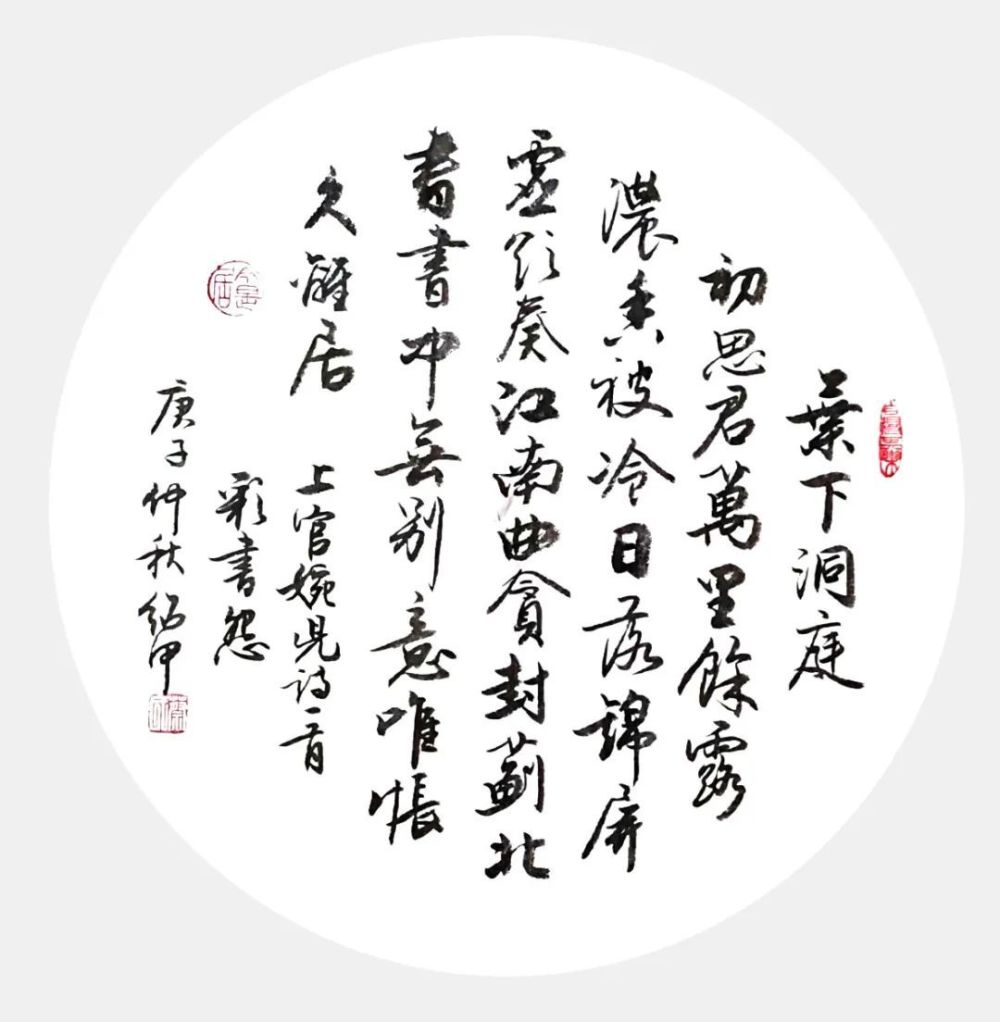 葉下洞庭
初思君萬里餘露
濃香被冷日落錦屏
虛欲奏江南曲貪封薊北
書書中無別意唯悵
久離居
上官婉兒詩一首
彩書怨
庚子仲秋紹甲